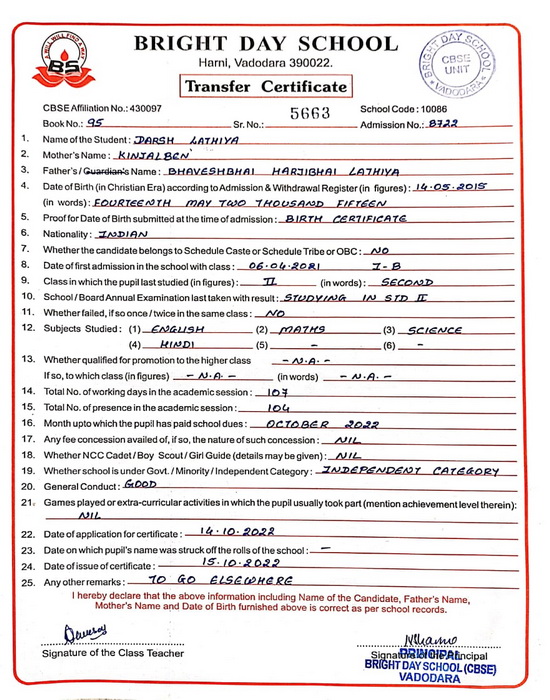 A WILL WILL FIND A WAY
BS
BRIGHT DAY SCHOOL
Harni, Vadodara 390022.
Transfer Certificate
BRIGHT DAY SCHOOL
CBSE
UNIT
* VADODARA *
CBSE Affiliation No.: 430097 5663 School Code : 10086
Book No.: 95 Sr. No.: Admission No.: 8722
1. Name of the Student : DARSH LATHIYA
2. Mother's Name : KINJALBEN
3. Father's / Guardian's Name : BHAVESHBHAI HARJIBHAI LATHIYA
4. Date of Birth (in Christian Era) according to Admission & Withdrawal Register (in figures) : 14.05.2015
(in words) : FOURTEENTH MAY TWO THOUSAND FIFTEEN
5. Proof for Date of Birth submitted at the time of admission : BIRTH CERTIFICATE
6. Nationality : INDIAN
7. Whether the candidate belongs to Schedule Caste or Schedule Tribe or OBC : NO
8. Date of first admission in the school with class : 06.04.2021 I-B
9. Class in which the pupil last studied (in figures) : II (in words) : SECOND
10. School / Board Annual Examination last taken with result : STUDYING IN STD II
11. Whether failed, if so once / twice in the same class : NO
12. Subjects Studied : (1) ENGLISH (2) MATHS (3) SCIENCE
(4) HINDI (5) - (6) -
13. Whether qualified for promotion to the higher class - N.A. -
If so, to which class (in figures) - N.A. - (in words) - N.A. -
14. Total No. of working days in the academic session : 107
15. Total No. of presence in the academic session : 104
16. Month upto which the pupil has paid school dues : OCTOBER 2022
17. Any fee concession availed of, if so, the nature of such concession : NIL
18. Whether NCC Cadet / Boy Scout / Girl Guide (details may be given) : NIL
19. Whether school is under Govt. / Minority / Independent Category : INDEPENDENT CATEGORY
20. General Conduct : GOOD
21. Games played or extra-curricular activities in which the pupil usually took part (mention achievement level therein) :
NIL
22. Date of application for certificate : 14.10.2022
23. Date on which pupil's name was struck off the rolls of the school : -
24. Date of issue of certificate : 15.10.2022
25. Any other remarks : TO GO ELSEWHERE
I hereby declare that the above information including Name of the Candidate, Father's Name,
Mother's Name and Date of Birth furnished above is correct as per school records.
Signature of the Class Teacher
Signature of the Principal
PRINCIPAL
BRIGHT DAY SCHOOL (CBSE)
VADODARA